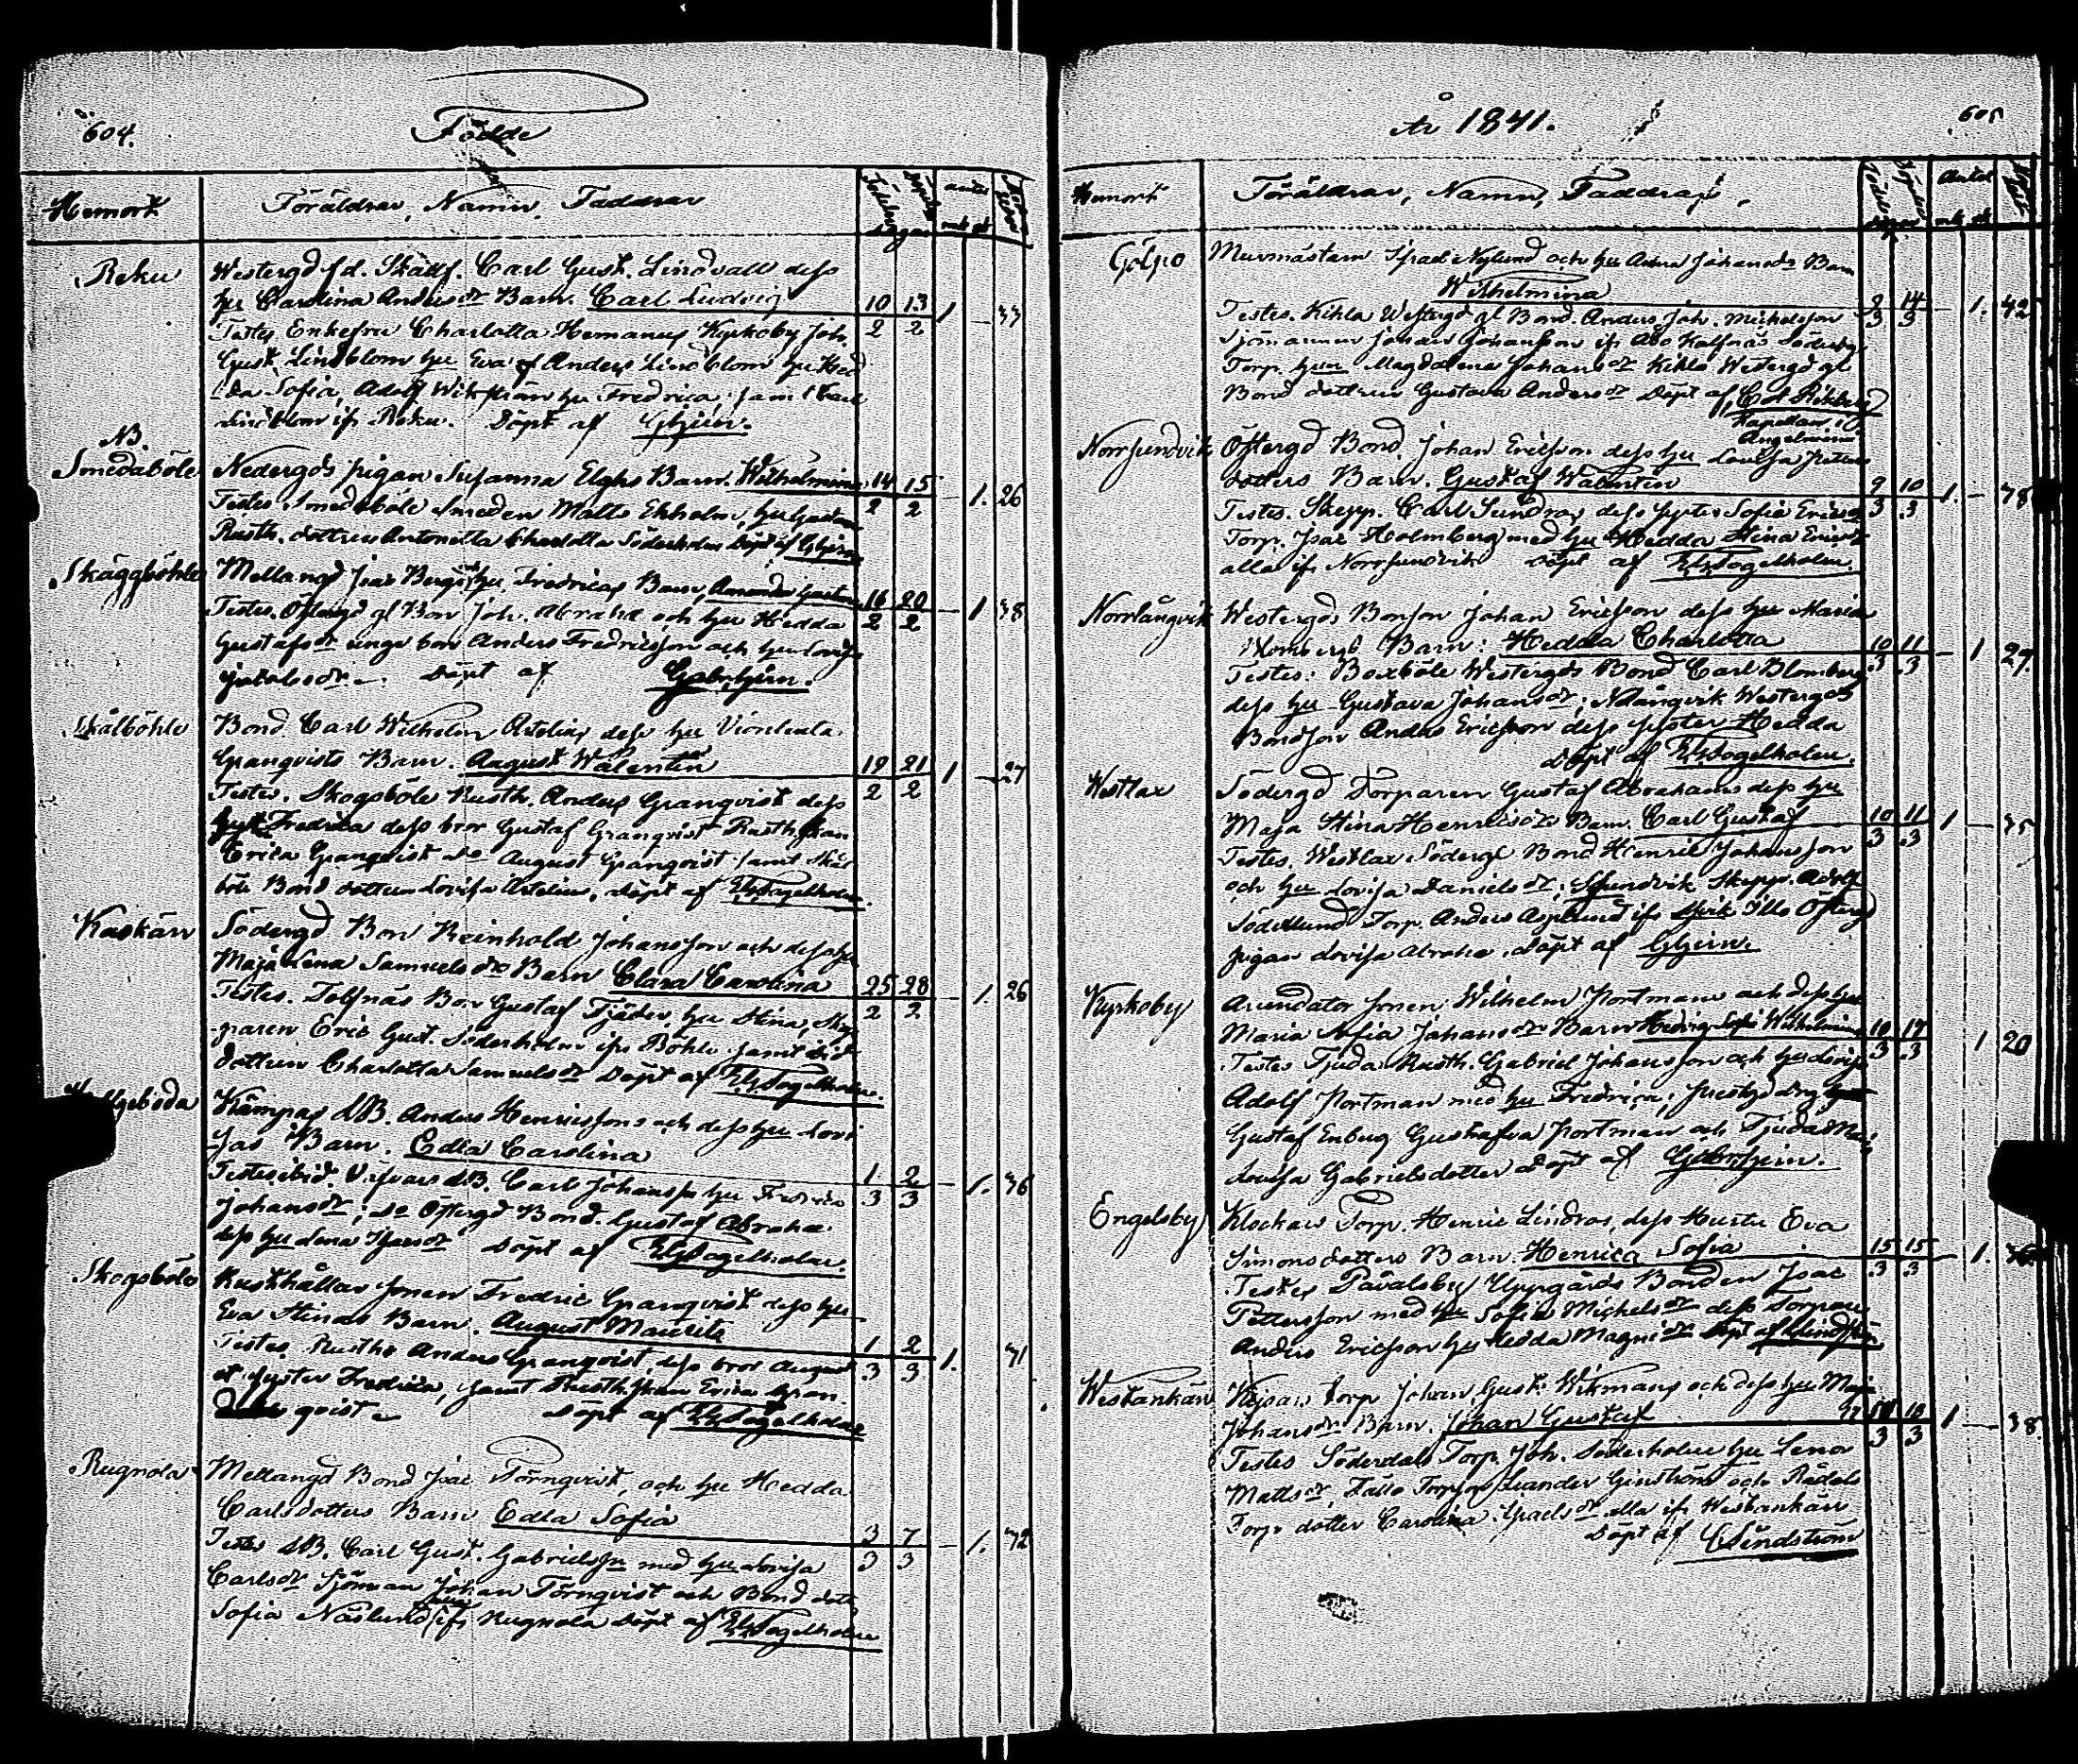 604.
Födde
Hemort
Föräldrar, Namn, Faddrar
Födelse
Döpelse
dagar
antal
mk qk
Reku
Westergd f.d. Skallf. Carl Gust. Lindvall dess
hu Carolina Andersdr Barn. Carl Ludvig 10 13 1 — 33
Testes Enkefru Charlotta Hemanus Kyrkoby Joh. 2 2
Gust. Lindblom hu Eva & Anders Lindblom hu Hed
da Sofia, Adolf Wikström hu Fredrica samt Carl
Lindblom ifr Reku. Döpt af Gbgeim.
NB.
Smedaböle
Nedergds pigan Susanna Elghs Barn. Wilhelmina 14 15 — 1. 26
Testes Smedaböle Smeden Matts Ekholm, hu 2 2
Rusth. dottren Antonetta Charlotta Söderholm Döpt af
Skäggböhle
Mellangd Isac Bergs hu Fredricas Barn, Amanda 16 20 — 1 38
Testes. Östergd gl Bon Joh. Abraha och hu Hedda 2 2
Gustafsdr unge bon Anders Fredricsson och hu Lovisa
Jakobsdr. Döpt af
Skålböhle
Bond. Carl Wilhelm Artelius dess hu
Granqvists Barn. August Walentin 19 21 1 — 27
Testes. Skogsböle Rusth. Anders Granqvist dess 2 2
Fredrica dess bror Gustaf Granqvist Rusth.
Erica Granqvist Do August Granqvist samt Skål
böle Bond dottren Lovisa Artelius. döpt af EGTogelholm.
Kaskärr
Södergd Bon Reinhold Johansson och dess hu
Maja Lena Samuelsdr Barn Clara Carolina 25 28 — 1. 26
Testes. Tolfnäs Bon Gustaf Fjäder, hu Stina, Skep 2 2
paren Eric Gust. Söderholm ifr Böhle samt
dottren Charlotta Samuelsdr Döpt af EGTogelholm.
Kämpas dB. Anders Henricssons och dess hu Lovi
sas Barn. Edla Carolina 1 2 — 1. 36
Testes ibid. dB. Carl Johanss. hu Fredrica 3 3
Johansdr; Do Östergd Bond. Gustaf Abraha.
dess hu Lena Döpt af EGTogelholm.
Skogsböle
Rusthållar Sonen Fredric Granqvist dess hu
Eva Stinas Barn. August Mauritz 1 2 1. 31
Testes. Rusth. Anders Granqvist, dess bror August 3 3
et syster Fredrica, samt Rusth. Erica Gran
qvist Döpt af EGTogelholm
Rugnola
Mellangd Bond Isac Törnqvist, och hu Hedda
Carlsdotters Barn Edla Sofia 3 7 — 1. 32
Testes dB. Carl Gust. Gabrielssn med hu Lovisa 3 3
Carlsdr Sjöman Johan Törnqvist och Bond dott.
Sofia Näslund ifr Rugnola Döpt af EGTogelholm
År 1841.
605
Hemort
Föräldrar, Namn, Faddrar.
Antal
mk qk
Gölpo
Murmästarn Israel Nylund och hu Anna Johansdr Barn
Wilhelmina 2 14 — 1. 42
Testes. Kihla Westergd gl Bond. Anders Joh. Michelsson 3 3
Sjömannen Johan Johansson ifr Åbo Kalfnäs
Torp. hun Magdalena Johansdr Kihla Westergd gl
Bond dottren Gustava Andersdr Döpt af
Kapellan
Norrsundvik
Östergd Bond. Johan Ericsson dess hu Lovisa Peters
dotters Barn. Gustaf Walentin 9 10 1. —
Testes. Skepp. Carl Sundras dess syster Sofia Ericsdr 3 3
Torp. Isac Holmberg med hu Hedda Stina Ericsdr
alla ifr Norrsundvik Döpt af EGTogelholm.
Norrlångvik
Westergds Bonson Johan Ericsson dess hu Maria
Blombergs Barn: Hedda Charlotta 10 11 — 1 27
Testes: Boxböle Westergds Bond Carl Blomberg 3 3
dess hu Gustava Johansdr; Nlångvik Westergds
Bondson Anders Ericsson dess syster Hedda
Döpt af EGTogelholm.
Westlax
Södergd Torparen Gustaf Abrahams dess hu
Maja Stina Henricsdrs Barn. Carl Gustaf 10 11 1 — 35
Testes. Westlax Södergd Bond Henric Johansson 3 3
och hu Lovisa Danielsdr; Sundvik Skepp. Adolf
Söderlund Torp. Anders Asplund ifr Ölls Östergd
pigan Lovisa Abraha. döpt af
Kyrkoby
Arendator Sonen Wilhelm Portman och dess hu
Maria Sofia Johansdr Barn Hedvig Sofia Wilhelmina 10 17 1 20
Testes Tjuda Rusth. Gabriel Johansson och hu Lovisa 3 3
Adolf Portman med hu Fredrica; Prestgd drg
Gustaf Enberg Gustafva Portman och Tjuda
Lovisa Gabrielsdotter Döpt af
Engelsby
Klockars Torp. Henric Lindros, dess Hustru Eva
Simonsdotters Barn. Henrica Sofia 15 15 — 1.
Testes Påvalsby Uppgårds Bonden Isac 3 3
Pettersson med hu Sofia Michelsdr dess Torpare
Anders Ericsson hu Hedda Magnidr Döpt af CLindström
Westankärr
Torp Johan Gust. Wikmans och dess hu Maja
Johansdr Barn. Johan Gustaf 18 1 — 38.
Testes Söderdals Torp. Joh. Söderholm hu Lena 3 3
Mattsdr, Fälls Torpson Leander Genström och Rädels
Torp dotter Carolina Israelsdr alla ifr Westankärr
Döpt af CLindström